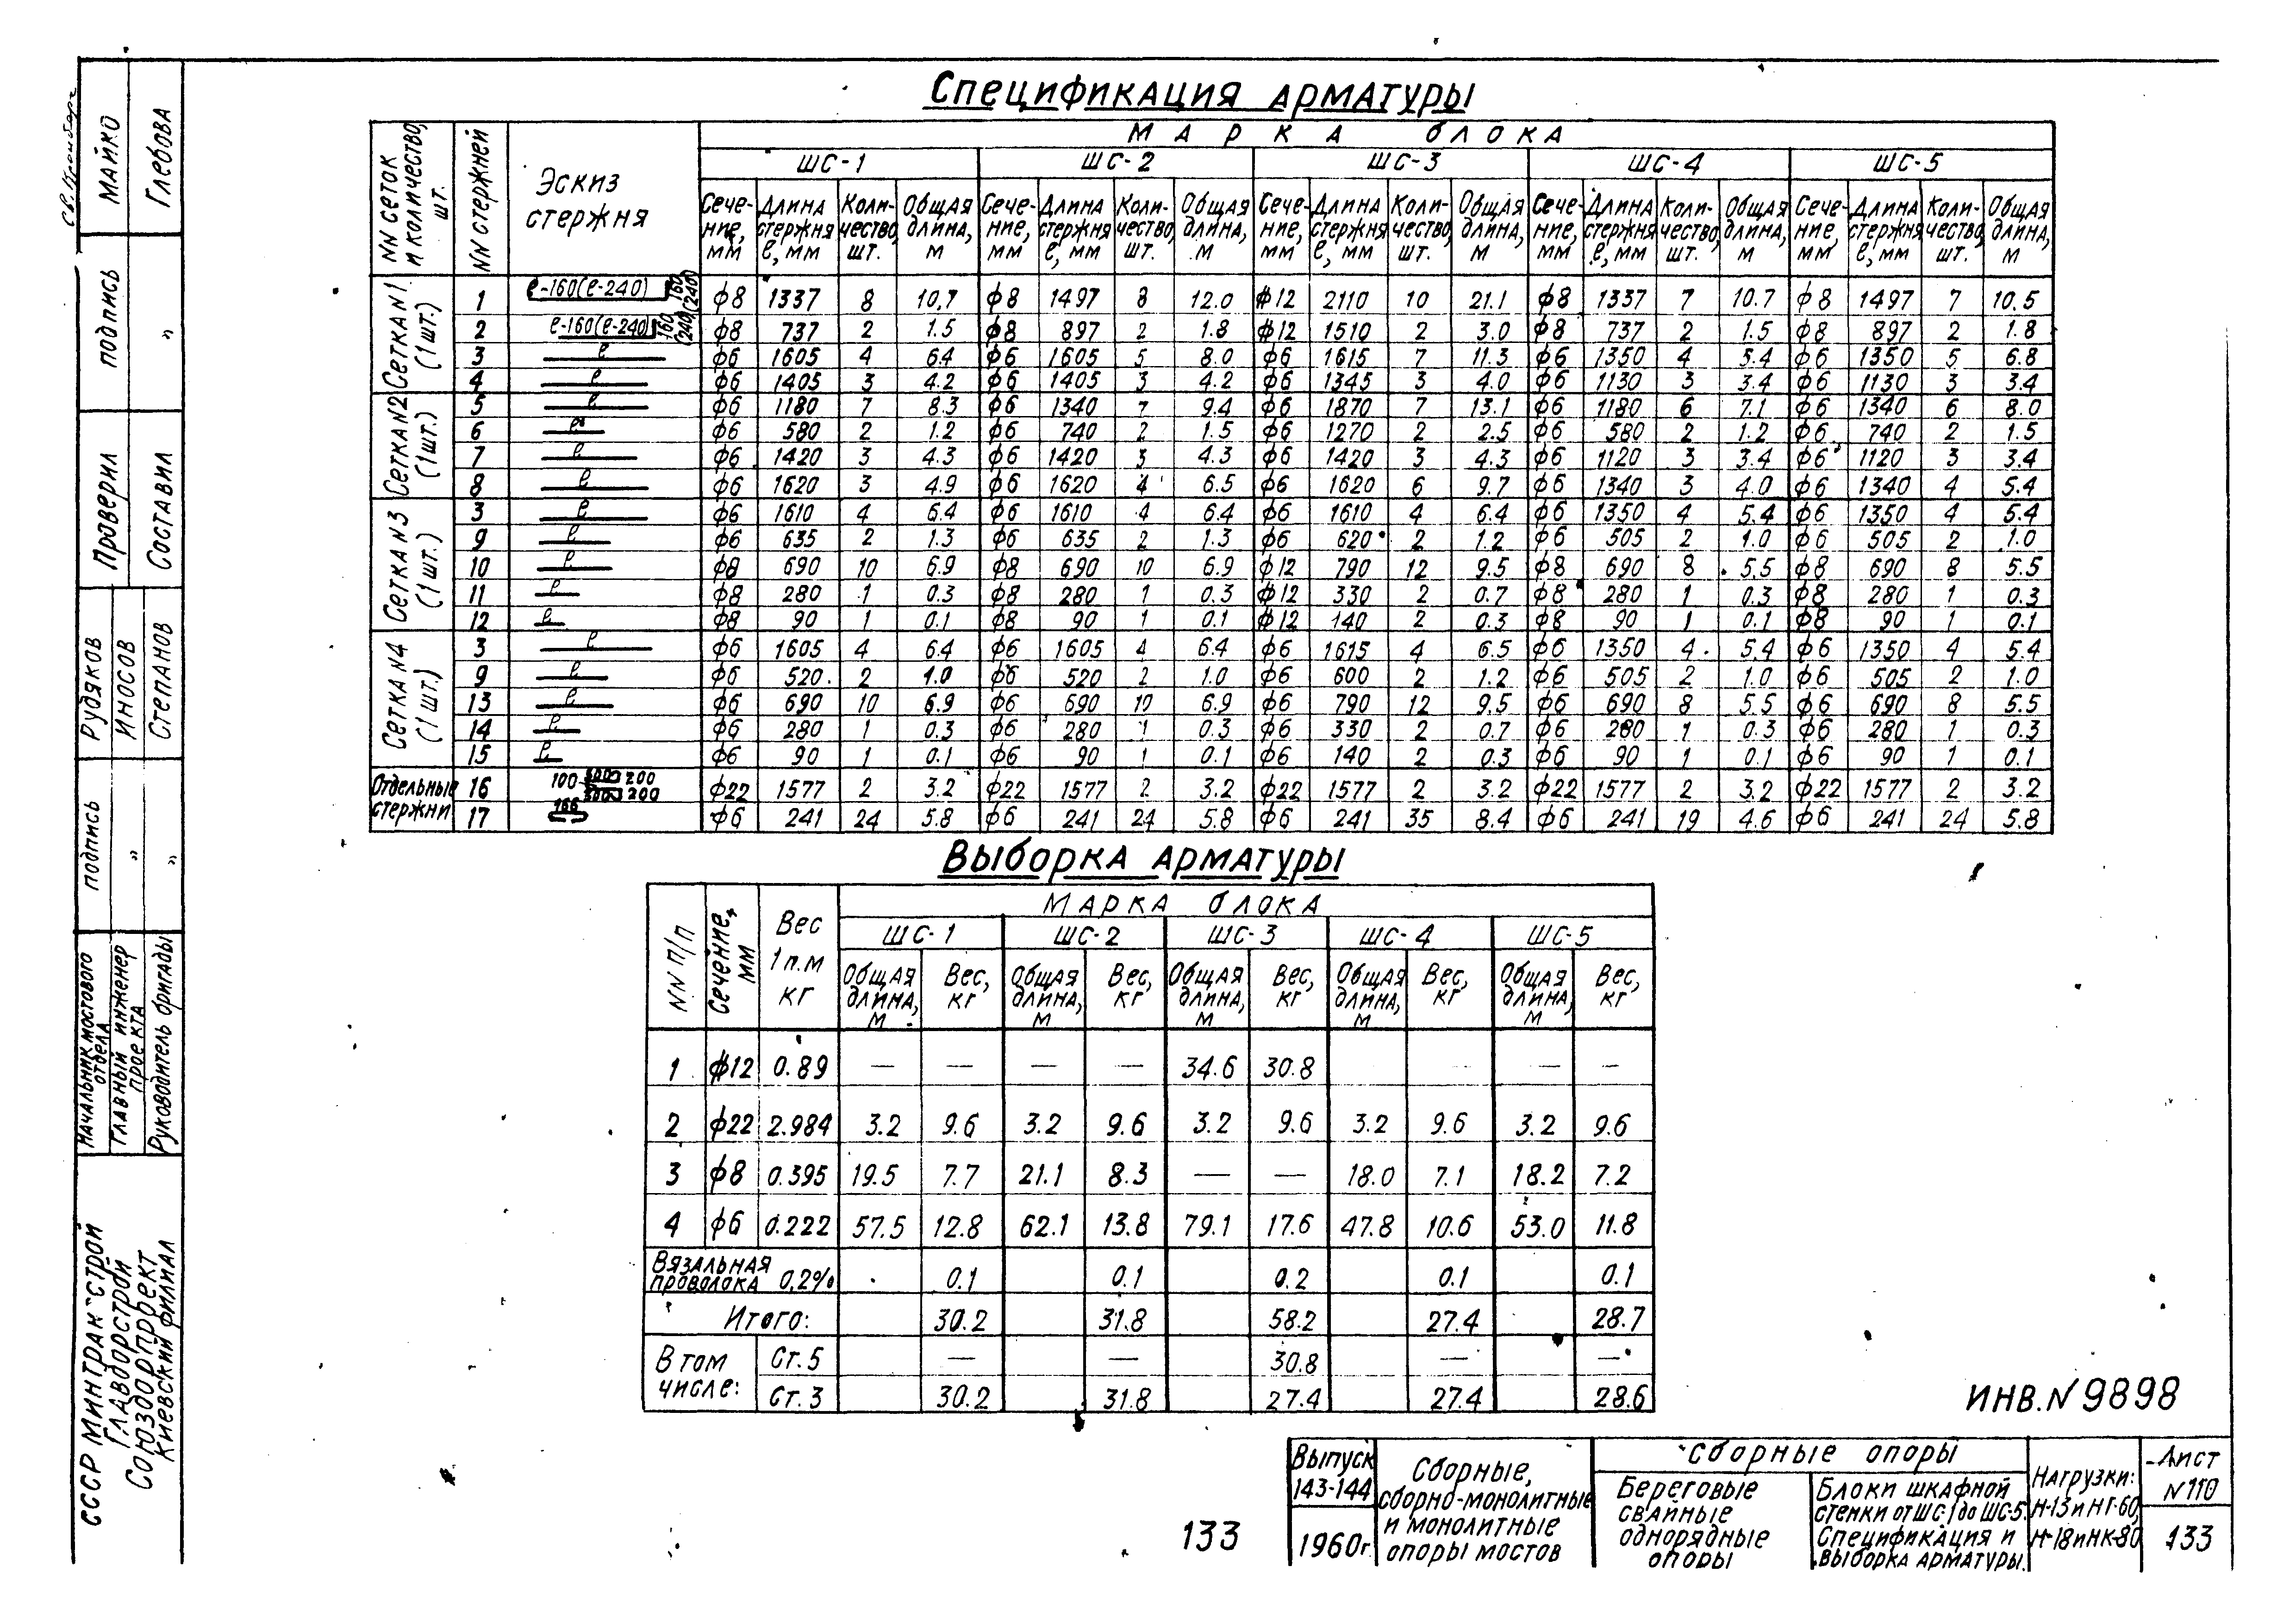 Спецификация арматуры
NN сеток и количество, шт. | NN стержней | Эскиз стержня | Марка блока
ШС-1 | ШС-2 | ШС-3 | ШС-4 | ШС-5
Сечение, мм | Длина стержня ℓ, мм | Количество, шт. | Общая длина, м | Сечение, мм | Длина стержня ℓ, мм | Количество, шт. | Общая длина, м | Сечение, мм | Длина стержня ℓ, мм | Количество, шт. | Общая длина, м | Сечение, мм | Длина стержня ℓ, мм | Количество, шт. | Общая длина, м | Сечение, мм | Длина стержня ℓ, мм | Количество, шт. | Общая длина, м
Сетка N1 (1шт.)
1 | ℓ-160(ℓ-240) 160 (240) | ф8 | 1337 | 8 | 10.7 | ф8 | 1497 | 8 | 12.0 | ф12 | 2110 | 10 | 21.1 | ф8 | 1337 | 7 | 10.7 | ф8 | 1497 | 7 | 10.5
2 | ℓ-160(ℓ-240) 160 (240) | ф8 | 737 | 2 | 1.5 | ф8 | 897 | 2 | 1.8 | ф12 | 1510 | 2 | 3.0 | ф8 | 737 | 2 | 1.5 | ф8 | 897 | 2 | 1.8
3 | ℓ | ф6 | 1605 | 4 | 6.4 | ф6 | 1605 | 5 | 8.0 | ф6 | 1615 | 7 | 11.3 | ф6 | 1350 | 4 | 5.4 | ф6 | 1350 | 5 | 6.8
4 | ℓ | ф6 | 1405 | 3 | 4.2 | ф6 | 1405 | 3 | 4.2 | ф6 | 1345 | 3 | 4.0 | ф6 | 1130 | 3 | 3.4 | ф6 | 1130 | 3 | 3.4
Сетка N2 (1шт.)
5 | ℓ | ф6 | 1180 | 7 | 8.3 | ф6 | 1340 | 7 | 9.4 | ф6 | 1870 | 7 | 13.1 | ф6 | 1180 | 6 | 7.1 | ф6 | 1340 | 6 | 8.0
6 | ℓ | ф6 | 580 | 2 | 1.2 | ф6 | 740 | 2 | 1.5 | ф6 | 1270 | 2 | 2.5 | ф6 | 580 | 2 | 1.2 | ф6 | 740 | 2 | 1.5
7 | ℓ | ф6 | 1420 | 3 | 4.3 | ф6 | 1420 | 3 | 4.3 | ф6 | 1420 | 3 | 4.3 | ф6 | 1120 | 3 | 3.4 | ф6 | 1120 | 3 | 3.4
8 | ℓ | ф6 | 1620 | 3 | 4.9 | ф6 | 1620 | 4 | 6.5 | ф6 | 1620 | 6 | 9.7 | ф6 | 1340 | 3 | 4.0 | ф6 | 1340 | 4 | 5.4
Сетка N3 (1шт.)
3 | ℓ | ф6 | 1610 | 4 | 6.4 | ф6 | 1610 | 4 | 6.4 | ф6 | 1610 | 4 | 6.4 | ф6 | 1350 | 4 | 5.4 | ф6 | 1350 | 4 | 5.4
9 | ℓ | ф6 | 635 | 2 | 1.3 | ф6 | 635 | 2 | 1.3 | ф6 | 620 | 2 | 1.2 | ф6 | 505 | 2 | 1.0 | ф6 | 505 | 2 | 1.0
10 | ℓ | ф8 | 690 | 10 | 6.9 | ф8 | 690 | 10 | 6.9 | ф12 | 790 | 12 | 9.5 | ф8 | 690 | 8 | 5.5 | ф8 | 690 | 8 | 5.5
11 | ℓ | ф8 | 280 | 1 | 0.3 | ф8 | 280 | 1 | 0.3 | ф12 | 330 | 2 | 0.7 | ф8 | 280 | 1 | 0.3 | ф8 | 280 | 1 | 0.3
12 | ℓ | ф8 | 90 | 1 | 0.1 | ф8 | 90 | 1 | 0.1 | ф12 | 140 | 2 | 0.3 | ф8 | 90 | 1 | 0.1 | ф8 | 90 | 1 | 0.1
Сетка N4 (1шт.)
3 | ℓ | ф6 | 1605 | 4 | 6.4 | ф6 | 1605 | 4 | 6.4 | ф6 | 1615 | 4 | 6.5 | ф6 | 1350 | 4 | 5.4 | ф6 | 1350 | 4 | 5.4
9 | ℓ | ф6 | 520 | 2 | 1.0 | ф6 | 520 | 2 | 1.0 | ф6 | 600 | 2 | 1.2 | ф6 | 505 | 2 | 1.0 | ф6 | 505 | 2 | 1.0
13 | ℓ | ф6 | 690 | 10 | 6.9 | ф6 | 690 | 10 | 6.9 | ф6 | 790 | 12 | 9.5 | ф6 | 690 | 8 | 5.5 | ф6 | 690 | 8 | 5.5
14 | ℓ | ф6 | 280 | 1 | 0.3 | ф6 | 280 | 1 | 0.3 | ф6 | 330 | 2 | 0.7 | ф6 | 280 | 1 | 0.3 | ф6 | 280 | 1 | 0.3
15 | ℓ | ф6 | 90 | 1 | 0.1 | ф6 | 90 | 1 | 0.1 | ф6 | 140 | 2 | 0.3 | ф6 | 90 | 1 | 0.1 | ф6 | 90 | 1 | 0.1
Отдельные стержни
16 | 100 200 200 | ф22 | 1577 | 2 | 3.2 | ф22 | 1577 | 2 | 3.2 | ф22 | 1577 | 2 | 3.2 | ф22 | 1577 | 2 | 3.2 | ф22 | 1577 | 2 | 3.2
17 | 166 | ф6 | 241 | 24 | 5.8 | ф6 | 241 | 24 | 5.8 | ф6 | 241 | 35 | 8.4 | ф6 | 241 | 19 | 4.6 | ф6 | 241 | 24 | 5.8
Выборка арматуры
NN п/п | Сечение, мм | Вес 1 п.м кг | Марка блока
ШС-1 | ШС-2 | ШС-3 | ШС-4 | ШС-5
Общая длина, м | Вес, кг | Общая длина, м | Вес, кг | Общая длина, м | Вес, кг | Общая длина, м | Вес, кг | Общая длина, м | Вес, кг
1 | ф12 | 0.89 | — | — | — | — | 34.6 | 30.8 | — | — | — | —
2 | ф22 | 2.984 | 3.2 | 9.6 | 3.2 | 9.6 | 3.2 | 9.6 | 3.2 | 9.6 | 3.2 | 9.6
3 | ф8 | 0.395 | 19.5 | 7.7 | 21.1 | 8.3 | — | — | 18.0 | 7.1 | 18.2 | 7.2
4 | ф6 | 0.222 | 57.5 | 12.8 | 62.1 | 13.8 | 79.1 | 17.6 | 47.8 | 10.6 | 53.0 | 11.8
Вязальная проволока 0,2% | 0.1 | 0.1 | 0.2 | 0.1 | 0.1
Итого: | 30.2 | 31.8 | 58.2 | 27.4 | 28.7
В том числе: | Ст.5 | — | — | 30.8 | — | —
Ст.3 | 30.2 | 31.8 | 27.4 | 27.4 | 28.6
ИНВ.N 9898
133
Выпуск 143-144
1960г.
Сборные,
сборно-монолитные
и монолитные
опоры мостов
Сборные опоры
Береговые
свайные
однорядные
опоры
Блоки шкафной
стенки от ШС-1 до ШС-5.
Спецификация и
выборка арматуры.
Нагрузки:
Н-13 и НГ-60,
Н-18 и НК-80
Лист
N110
133
СССР Минтрансстрой
Главдорстрой
Союздорпроект
Киевский филиал
Начальник мостового отдела | подпись | Рудяков
Главный инженер проекта | " | Иносов
Руководитель бригады | " | Степанов
Проверил | подпись | Майко
Составил | " | Глебова